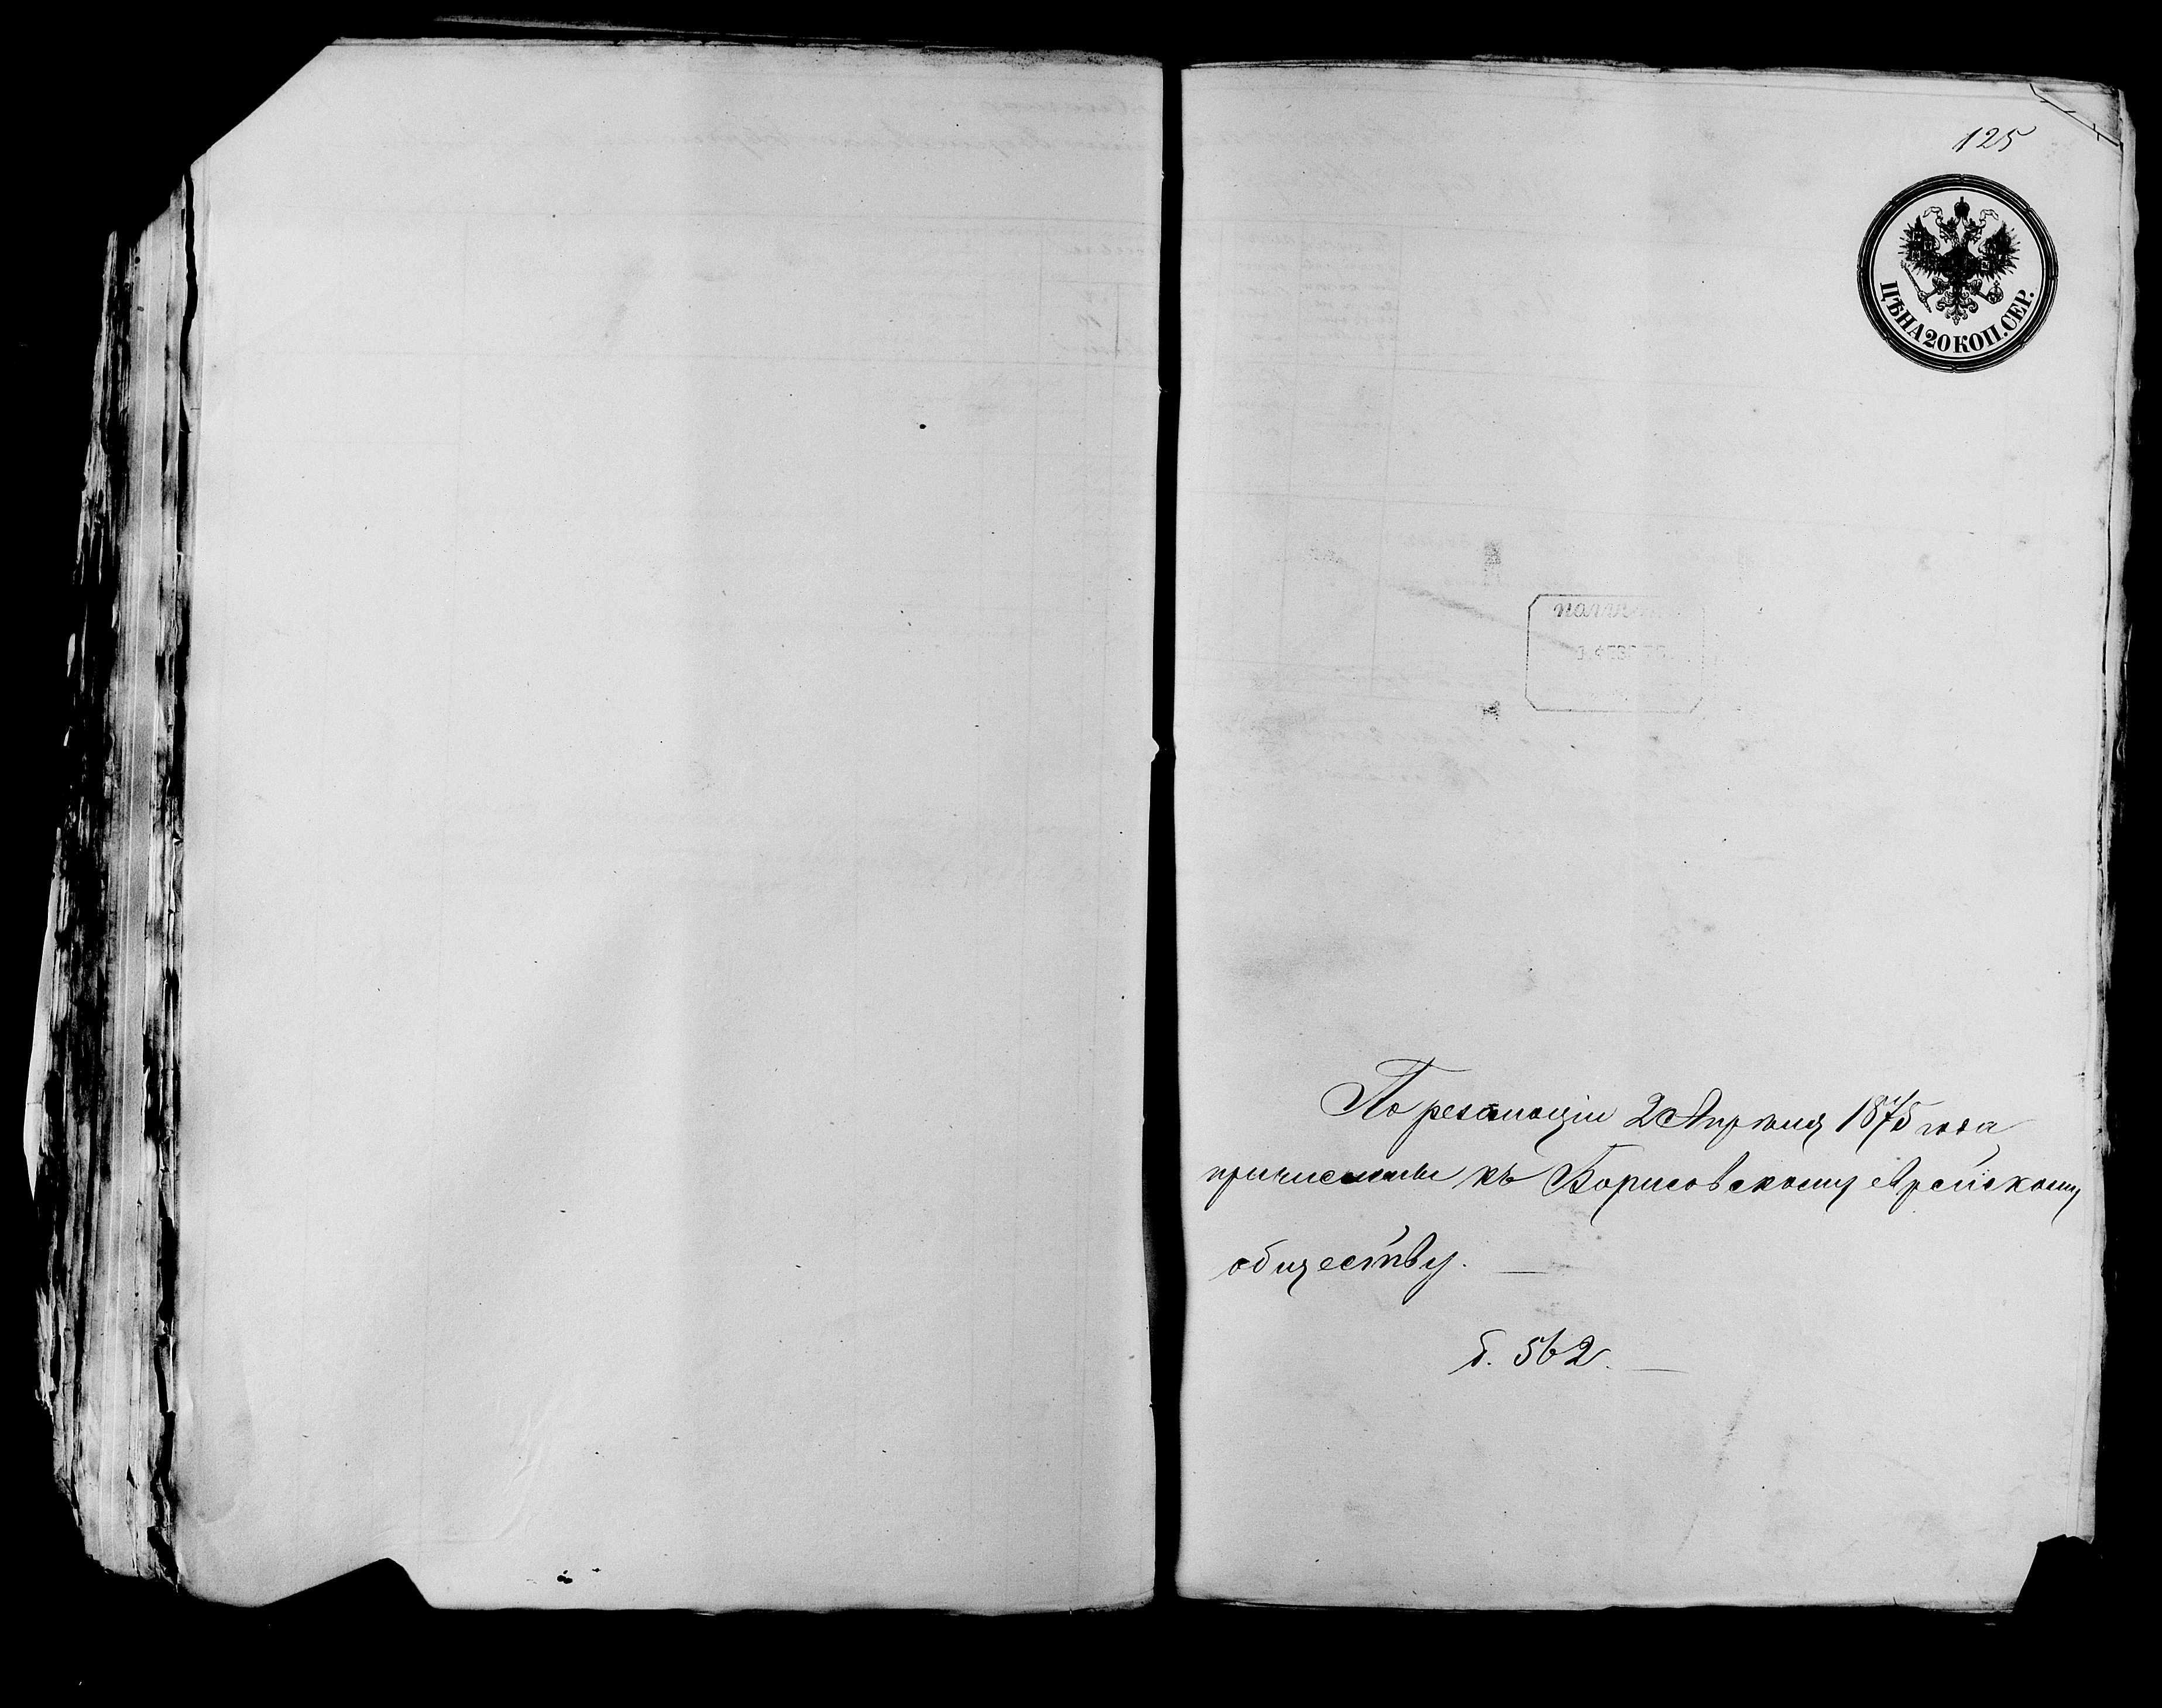 125
ЦѢНА 20 КОП. СЕР.
По резолюціи 2 Апрѣля 1875 года
причислены къ Борисовскому еврейскому
обществу.
б. 562.